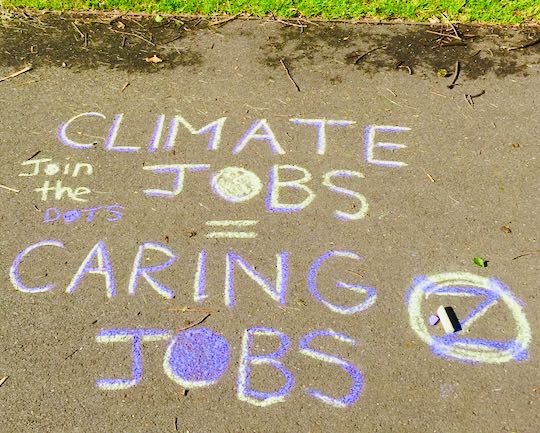 CLIMATE
JOBS
Join
the
DOTS
=
CARING
JOBS